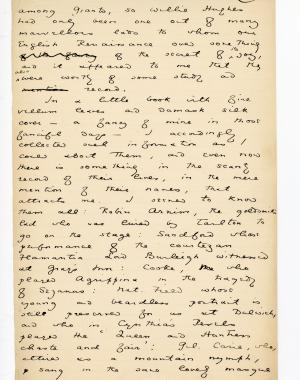 among Giants, so Willie Hughes
had only been one out of many
marvellous lads to whom our
English Renaissance owes something
of the secret of its joy,
and it appeared to me that they
were worthy of some study and
record.
In a little book with fine
vellum leaves and damask silk
cover – a fancy of mine in those
fanciful days – I accordingly
collected such information as I
could about them, and even now
there is something in the scanty
record of their lives, in the mere
mention of their names, that
attracts me. I seemed to know
them all: Robin Armin, the goldsmith's
lad who was lured by Tarlton to
go on the stage: Sandford whose
performance of the courtezan
Flamantia Lord Burleigh witnessed
at Gray's Inn: Cooke, who
played Agrippina in the tragedy
of Sejanus: Nat. Field whose
young and beardless portrait is
still preserved for us at Dulwich,
and who in Cynthia's Revels
played the "Queen and Huntress
chaste and fair": Gil. Carie, who,
attired as a mountain nymph,
sang in the same lovely masque